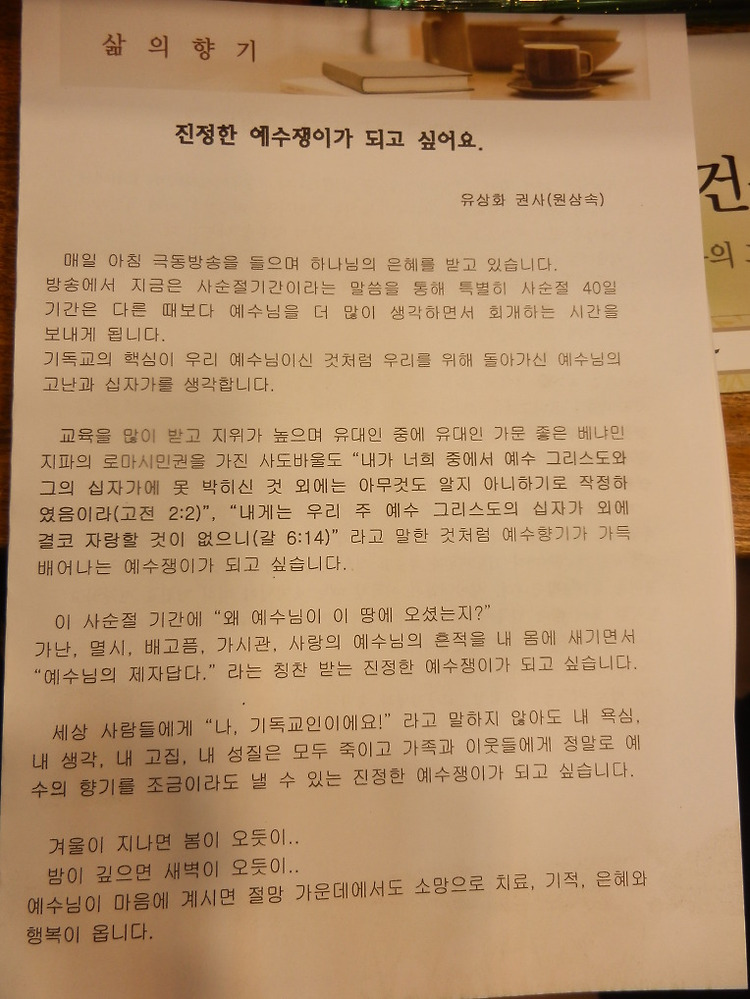 삶의향기
진정한 예수쟁이가 되고 싶어요.
유상화 권사(원상속)
매일 아침 극동방송을 들으며 하나님의 은혜를 받고 있습니다.
방송에서 지금은 사순절기간이라는 말씀을 통해 특별히 사순절 40일
기간은 다른 때보다 예수님을 더 많이 생각하면서 회개하는 시간을
보내게 됩니다.
기독교의 핵심이 우리 예수님이신 것처럼 우리를 위해 돌아가신 예수님의
고난과 십자가를 생각합니다.
교육을 많이 받고 지위가 높으며 유대인 중에 유대인 가문 좋은 베냐민
지파의 로마시민권을 가진 사도바울도 “내가 너희 중에서 예수 그리스도와
그의 십자가에 못 박히신 것 외에는 아무것도 알지 아니하기로 작정하
였음이라(고전 2:2)”, “내게는 우리 주 예수 그리스도의 십자가 외에
결코 자랑할 것이 없으니(갈 6:14)” 라고 말한 것처럼 예수향기가 가득
배어나는 예수쟁이가 되고 싶습니다.
이 사순절 기간에 “왜 예수님이 이 땅에 오셨는지?”
가난, 멸시, 배고픔, 가시관, 사랑의 예수님의 흔적을 내 몸에 새기면서
“예수님의 제자답다.” 라는 칭찬 받는 진정한 예수쟁이가 되고 싶습니다.
세상 사람들에게 “나, 기독교인이에요!” 라고 말하지 않아도 내 욕심,
내 생각, 내 고집, 내 성질은 모두 죽이고 가족과 이웃들에게 정말로 예
수의 향기를 조금이라도 낼 수 있는 진정한 예수쟁이가 되고 싶습니다.
겨울이 지나면 봄이 오듯이..
밤이 깊으면 새벽이 오듯이..
예수님이 마음에 계시면 절망 가운데에서도 소망으로 치료, 기적, 은혜와
행복이 옵니다.
건
의